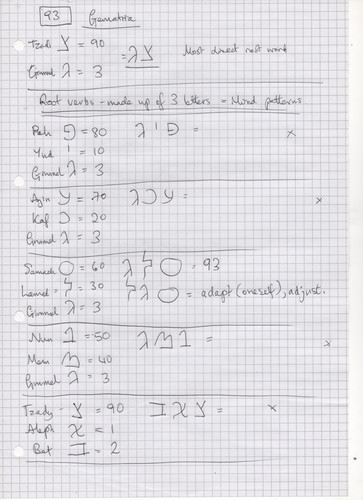 93 Gematria
Tzadi צ = 90 = צג Most direct root word
Gimmel ג = 3
Root verbs - made up of 3 letters = Mind patterns
Peh פ = 80 פיג = x
Yud י = 10
Gimmel ג = 3
Ayin ע = 70 עכג = x
Kaf כ = 20
Gimmel ג = 3
Samech ס = 60 סלג = 93
Lamed ל = 30 סגל = adapt (oneself), adjust.
Gimmel ג = 3
Nun נ = 50 נמג = x
Mem מ = 40
Gimmel ג = 3
Tzady - צ = 90 צאב = x
Aleph א = 1
Bet ב = 2